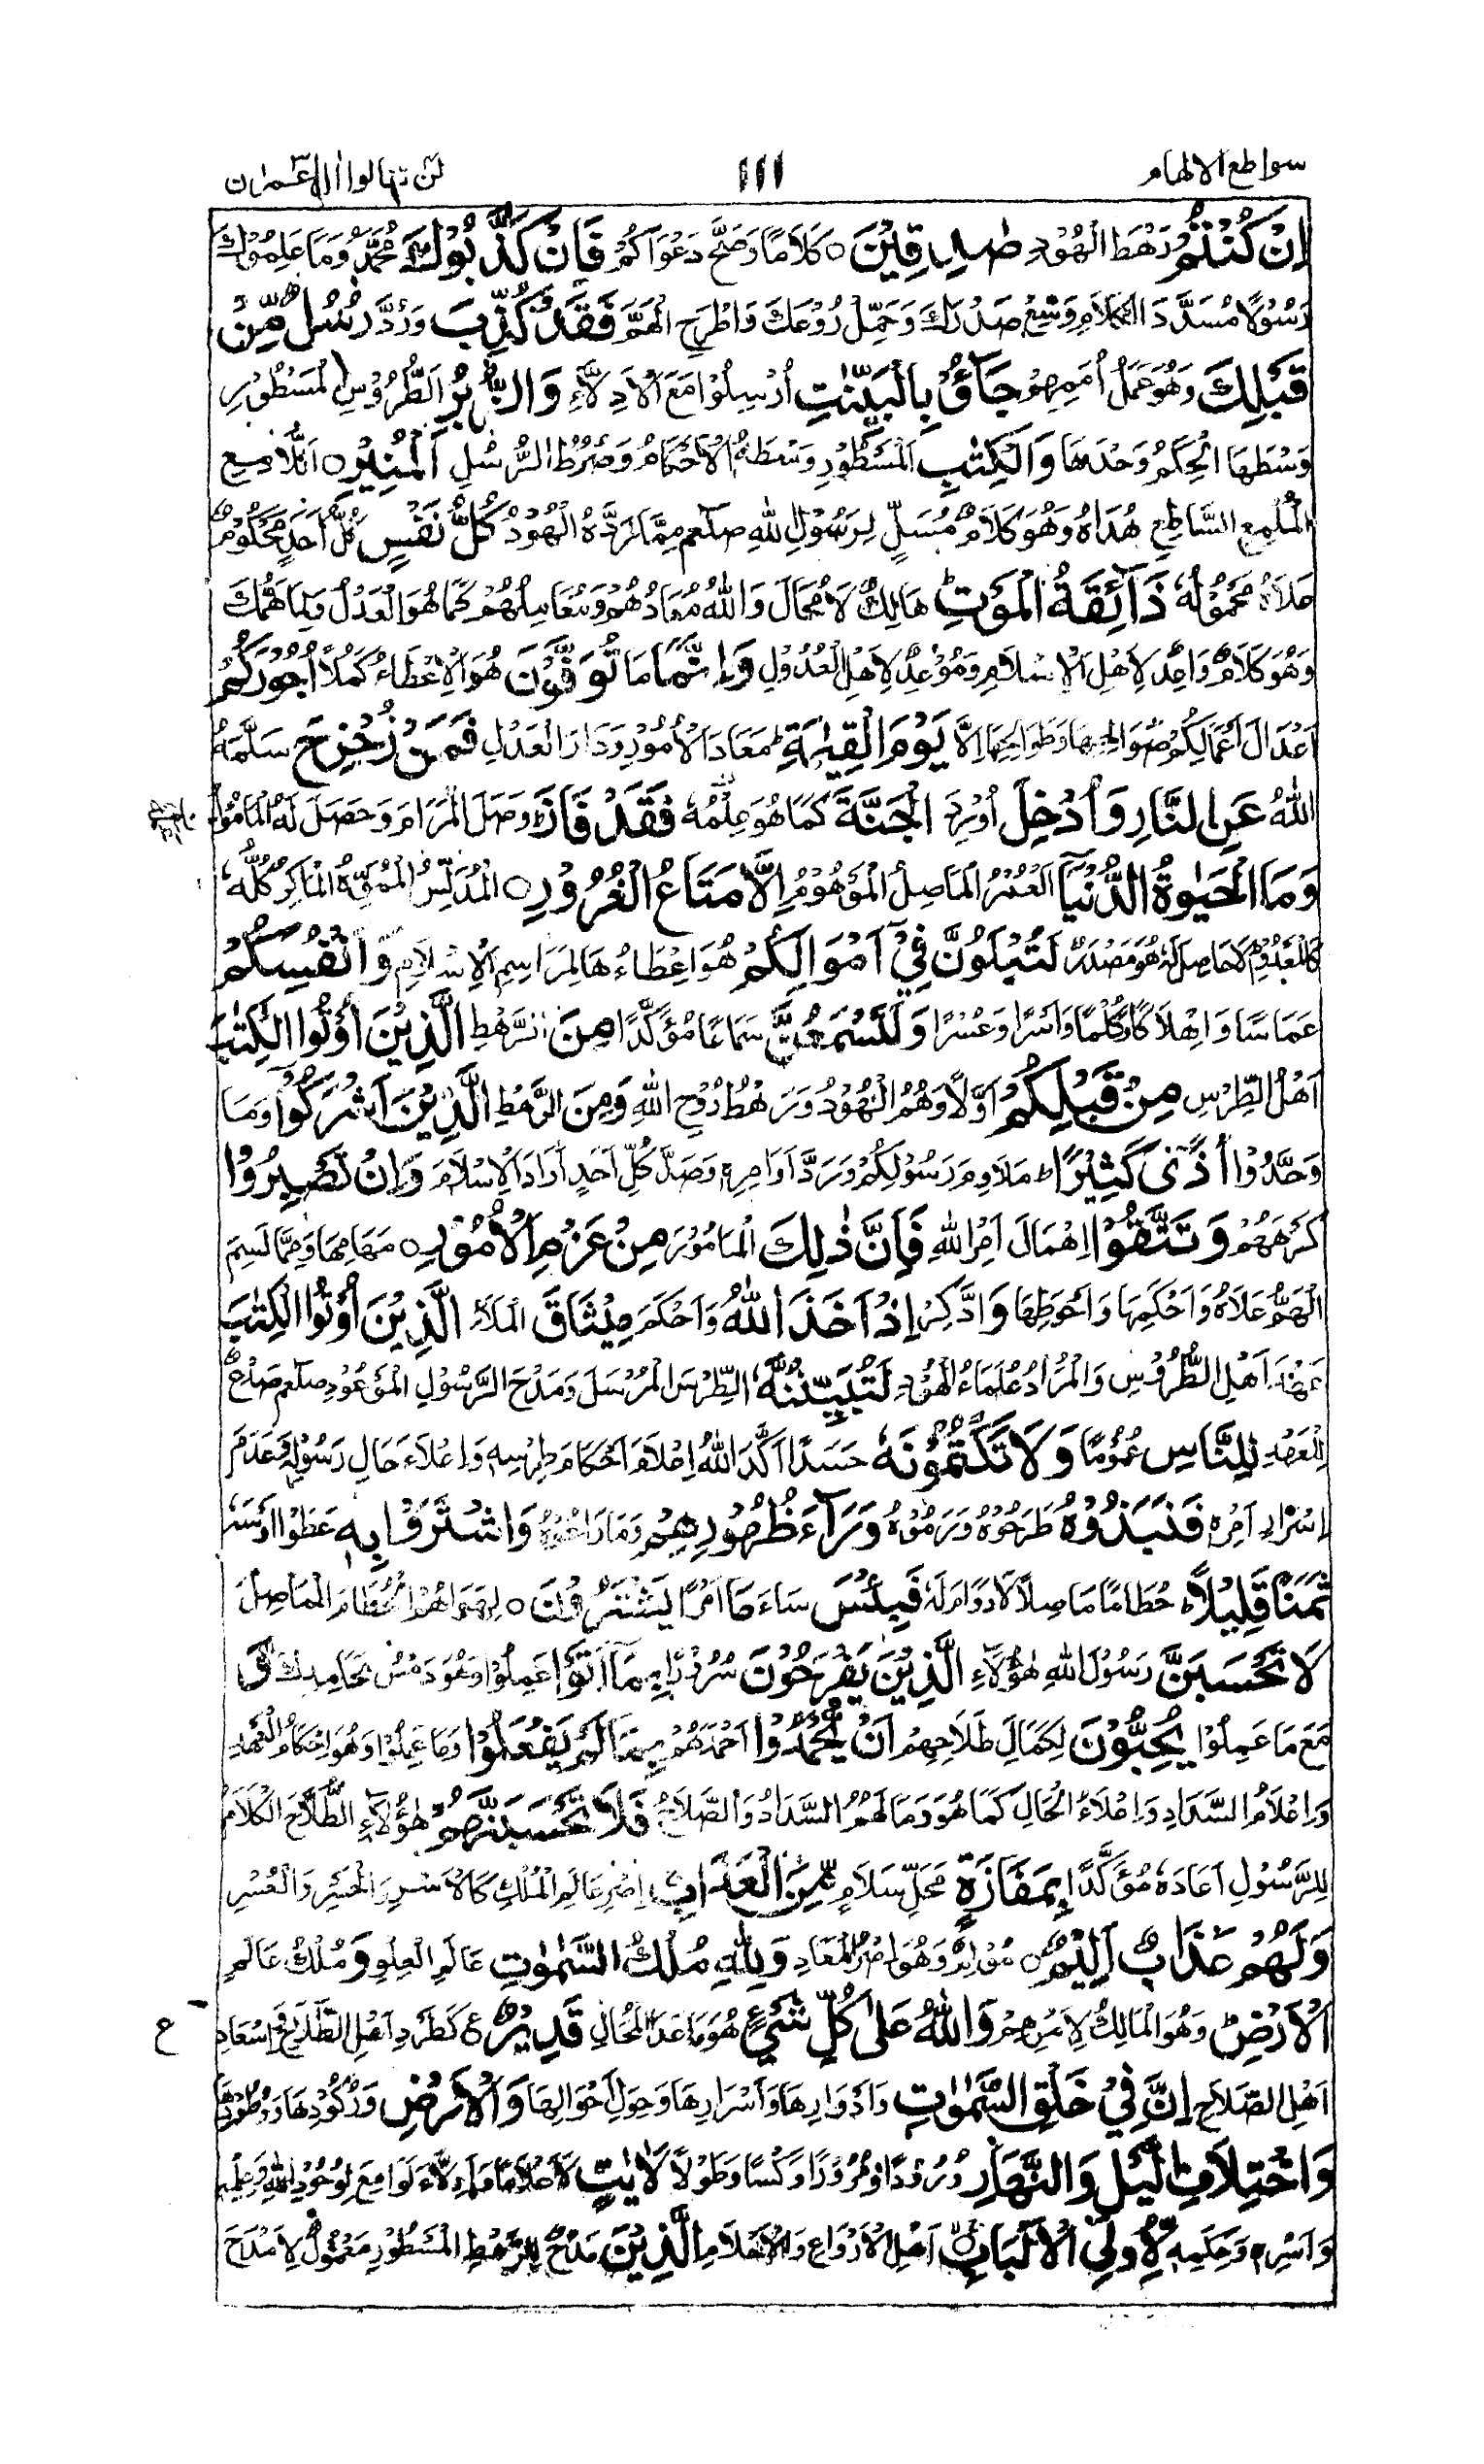 سواطع الالهام
١١١
لن تنالوا ال عمران
اِنْ كُنْتُمْ رَهْطَ الْهُوْدِ صٰدِقِيْنَ ○ كَلَامًا وَصَحَّ دَعْوَاكُمْ فَاِنْ كَذَّبُوْكَ مُحَمَّدُ وَمَا عَلِمُوْكَ
رَسُوْلًا مُسَدَّدَ الْكَلَامِ وَسِّعْ صَدْرَكَ وَحَمِّلْ رُوْعَكَ وَاطْرَحِ الْهَمَّ فَقَدْ كُذِّبَ وَرُدَّ رُسُلٌ مِّنْ
قَبْلِكَ وَهُوَ عَمَلُ اُمَمِهِمْ جَآءُوْ بِالْبَيِّنٰتِ اُرْسِلُوْا مَعَ الْاَدِلَّاءِ وَالزُّبُرِ الطُّرُوْسِ الْمَسْطُوْرِ
وَسْطَهَا الْحِكَمُ وَحْدَهَا وَالْكِتٰبِ الْمَسْطُوْرِ وَسْطَهُ الْاَحْكَامُ وَصُرُطُ الرُّسُلِ الْمُنِيْرِ ○ اللَّامِعِ
الْمُلْمِعِ السَّاطِعِ هُدَاهُ وَهُوَ كَلَامٌ مُسَلٍّ لِرَسُوْلِ اللهِ صلعم مِمَّا رَدَّهُ الْهُوْدُ كُلُّ نَفْسٍ كُلُّ اَحَدٍ مَحْكُوْمٌ
عَلَاهُ مَحْمُوْلُهٗ ذَآئِقَةُ الْمَوْتِ هَالِكٌ لَا مُحَالَ وَاللهُ مُعَادُهُمْ وَمُعَامِلُهُمْ كَمَا هُوَ الْعَدْلُ
وَهُوَ كَلَامٌ وَاعِدٌ لِاَهْلِ الْاِسْلَامِ وَمُوْعِدٌ لِاَهْلِ الْعُدُوْلِ وَاِنَّمَا مَا تُوَفَّوْنَ هُوَ الْاِعْطَاءُ كَمَلًا اُجُوْرَكُمْ
اَعْدَالَ اَعْمَالِكُمْ صَوَالِحِهَا وَطَوَالِحِهَا اِلَّا يَوْمَ الْقِيٰمَةِ مَعَادَ الْاُمُوْرِ وَدَارَ الْعَدْلِ فَمَنْ زُحْزِحَ سَلَّمَهُ
اللهُ عَنِ النَّارِ وَاُدْخِلَ اُوْرِدَ الْجَنَّةَ كَمَا هُوَ عِلْمُهٗ فَقَدْ فَازَ وَصَلَ الْمَرَامَ وَحَصَلَ لَهُ الْمَأْمُوْلُ
وَمَا الْحَيٰوةُ الدُّنْيَا الْعُمْرُ الْمَاصِلُ الْمَوْهُوْمُ اِلَّا مَتَاعُ الْغُرُوْرِ ○ الْمُدَلِّسُ الْمُمَوِّهُ الْمَاكِرُ كُلُّهٗ
كَالْمَعْدُوْمِ لَا حَاصِلَ لَهٗ هُوَ مَصْدَرٌ لَتُبْلَوُنَّ فِيْٓ اَمْوَالِكُمْ هُوَ اِعْطَاءُهَا لِمَرَاسِمِ الْاِسْلَامِ وَاَنْفُسِكُمْ
عَمَاسًا وَاِهْلَاكًا وَكَلْمًا وَاَسْرًا وَعُسْرًا وَلَتَسْمَعُنَّ سَمَاعًا مُؤَكَّدًا مِنَ الرَّهْطِ الَّذِيْنَ اُوْتُوا الْكِتٰبَ
اَهْلُ الطِّرْسِ مِنْ قَبْلِكُمْ اَوَّلًا وَهُمُ الْهُوْدُ وَرَهْطُ رُوْحِ اللهِ وَمِنَ الرَّهْطِ الَّذِيْنَ اَشْرَكُوْا وَمَا
وَحَّدُوْا اَذًى كَثِيْرًا مَلَاوِمَ رَسُوْلِكُمْ وَرَدَّ اَوَامِرِهٖ وَصَدَّ كُلِّ اَحَدٍ اَرَادَ الْاِسْلَامَ وَاِنْ تَصْبِرُوْا
كَرْهَهُمْ وَتَتَّقُوْا اِهْمَالَ اَمْرِ اللهِ فَاِنَّ ذٰلِكَ الْمَأْمُوْرَ مِنْ عَزْمِ الْاُمُوْرِ ○ مَهَامِّهَا وَمِمَّا لَسِمَ
الْهَمُّ عَلَاهُ وَاَحْكَمِهَا وَاَحْوَطِهَا وَادَّكِرْ اِذْ اَخَذَ اللهُ وَاَحْكَمَ مِيْثَاقَ الْمَلَاءِ الَّذِيْنَ اُوْتُوا الْكِتٰبَ
عَهْدَ اَهْلِ الطُّرُوْسِ وَالْمُرَادُ عُلَمَاءُ الْهُوْدِ لَتُبَيِّنُنَّهٗ الطِّرْسَ الْمُرْسَلَ وَمَدْحَ الرَّسُوْلِ الْمَوْعُوْدِ صلعم
لِلْعَهْدِ لِلنَّاسِ عُمُوْمًا وَلَا تَكْتُمُوْنَهٗ حَسَدًا اَكَّدَ اللهُ اِعْلَامَ اَحْكَامِ طِرْسِهٖ وَاِعْلَاءَ حَالِ رَسُوْلِهٖ وَعَدَمَ
اِسْرَارِ اَمْرِهٖ فَنَبَذُوْهُ طَرَحُوْهُ وَرَمَوْهُ وَرَآءَ ظُهُوْرِهِمْ وَمَا رَاعَوْهُ وَاشْتَرَوْا بِهٖ عَطَوْا
ثَمَنًا قَلِيْلًا حُطَامًا مَاصِلًا لَا دَوَامَ لَهٗ فَبِئْسَ سَاءَ مَا اَمْرًا يَشْتَرُوْنَ ○ الْحُطَامَ الْمَاصِلَ
لَا تَحْسَبَنَّ رَسُوْلَ اللهِ هٰؤُلَاءِ الَّذِيْنَ يَفْرَحُوْنَ سُرُوْرًا بِمَا اَتَوْا عَمِلُوْا وَ
مَعَ مَا عَمِلُوْا يُحِبُّوْنَ لِكَمَالِ طَلَاحِهِمْ اَنْ يُحْمَدُوْا اَحْمَدَهُمْ بِمَا لَمْ يَفْعَلُوْا وَمَا عَمِلُوْا وَهُوَ اِحْكَامُ الْعَهْدِ
وَاِعْلَامُ السَّدَادِ وَاِعْلَاءُ الْحَالِ كَمَا هُوَ وَمَا لَهُمُ السَّدَادُ وَالصَّلَاحُ فَلَا تَحْسَبَنَّهُمْ هٰؤُلَاءِ الطُّلَّاحَ الْكَلَامُ
لِلرَّسُوْلِ اَعَادَهٗ مُؤَكِّدًا بِمَفَازَةٍ مَحَلِّ سَلَامٍ مِّنَ الْعَذَابِ اِصْرِ عَالَمِ الْمُلْكِ كَالْاَسْرِ وَالْحَسْرِ وَالْعُسْرِ
وَلَهُمْ عَذَابٌ اَلِيْمٌ ○ مُؤْلِمٌ وَهُوَ اِصْرُ الْمَعَادِ وَلِلّٰهِ مُلْكُ السَّمٰوٰتِ عَالَمِ الْعِلْوِ وَ مُلْكُ عَالَمِ
الْاَرْضِ وَهُوَ الْمَالِكُ لِاَمْرِهِمْ وَاللهُ عَلٰى كُلِّ شَيْءٍ هُوَ مَا عَدَا الْمُحَالِ قَدِيْرٌ ع كَطَرْدِ اَهْلِ الطَّلَاحِ وَاِسْعَادِ
ع
اَهْلِ الصَّلَاحِ اِنَّ فِيْ خَلْقِ السَّمٰوٰتِ وَاَدْوَارِهَا وَاَسْرَارِهَا وَحِوَلِ اَحْوَالِهَا وَالْاَرْضِ وَرُكُوْدِهَا وَ
وَاخْتِلَافِ الَّيْلِ وَالنَّهَارِ وُرُوْدًا وَمُرُوْرًا وَكَسًّا وَطَوْلًا لَاٰيٰتٍ لَاَعْلَامًا وَاَدِلَّاءَ لَوَامِعَ لِوُجُوْدِ اللهِ وَعِلْمِهٖ
وَاَسْرِهٖ وَحِكَمِهٖ لِّاُولِى الْاَلْبَابِ ○ اَهْلِ الْاَرْوَاعِ وَالْاَحْلَامِ الَّذِيْنَ مَدْحٌ لِلرَّهْطِ الْمَسْطُوْرِ مَعْمُوْلٌ لِاَمْدَحَ